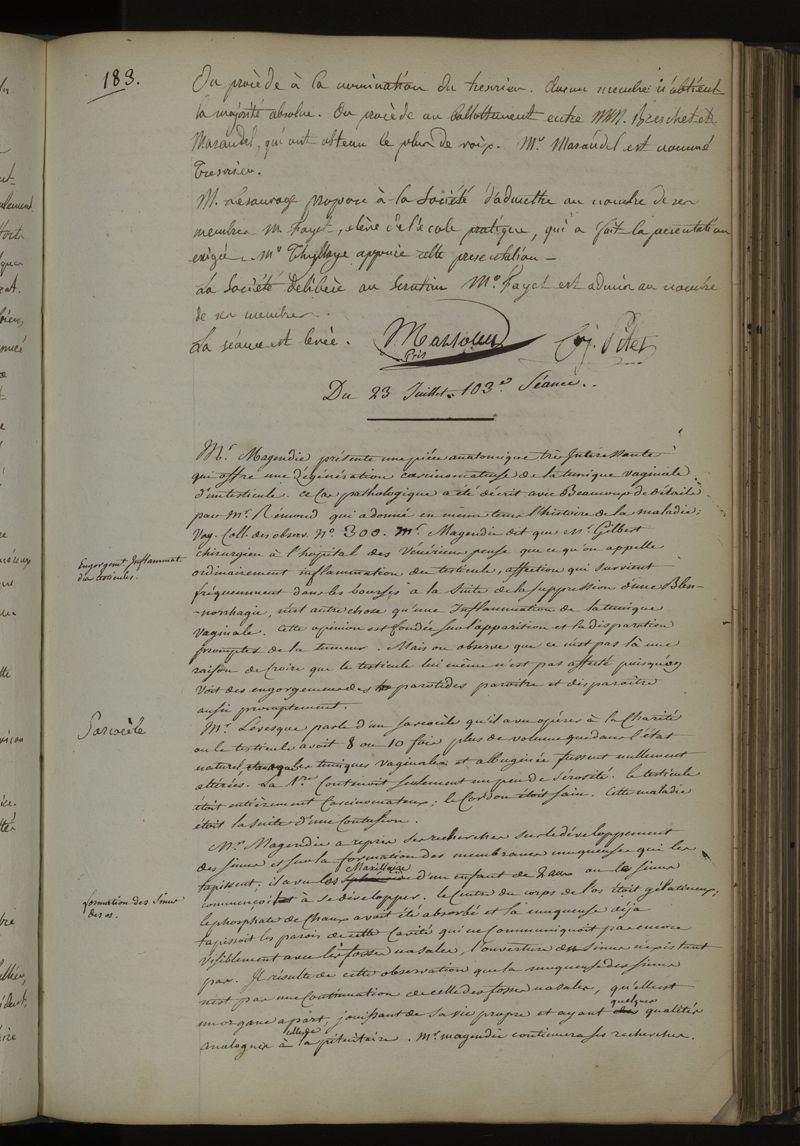 183.
On procède à la nomination du tresrier. Aucun membre n'obtient
la majorité absolue. On procède au ballottement entre MM. Breschet et
Marandel, qui ont obtenu le plus de voix. Mr Marandel est nommé
Tresorier.
M. Lesauvage propose à la Société d'admettre au nombre de ses
membres M. Fayet, élève de l'école pratique, qui a fait la présentation
exigée. Mr Thyllaye appuie cette présentation —
La Société délibère au Scrutin Mr Fayet est admis au nombre
de ses membres.
La séance est levée.
Du 23 Juillet. 103e Séance.
Mr. Magendie présente une pièce anatomique très Interessante
qui offre une dégénération carcinomateuse de la tunique vaginale
d'un testicule. ce Cas pathologique a été décrit avec Beaucoup de détails
par Mr. Rémond qui a donné en même tems l'histoire de la maladie;
Voy. Coll. des observ. No. 300. Mr. Magendie dit que Mr. Gilbert
Engorgent Inflammat.
des testicules.
chirurgien à l'hopital des Vénériens pense que ce qu'on appelle
ordinairement inflammation du testicule, affection qui survient
fréquemment dans les bourses à la Suite de la suppression d'une Blen-
-norrhagie, n'est autre chose qu'une Inflammation de la tunique
vaginale. Cette opinion est fondée sur l'apparition et la disparation
promptes de la tumeur. Mais on observe que ce n'est pas là une
raison de Croire que le testicule lui même n'est pas affecté puisqu'on
voit des engorgemens des parotides paroitre et disparaitre
aussi promptement.
Sarcocèle
Mr. Lévesque parle d'un sarcocèle qu'il a vu opérer à la Charité
ou le testicule avoit 8 ou 10 fois plus de volume que dans l'état
naturel, sans que les tuniques vaginales et albuginée fussent nullement
altérées. La Ne. Contenoit seulement un peu de sérosité. le testicule
étoit entièrement Carcinomateux, le Cordon étoit sain. Cette maladie
étoit la suite d'une Contusion.
Mr. Magendie a repris ses recherches sur le développement
des sinus et sur la formation des membranes muqueuses qui les
Maxillaire
tapissent; il a vu les d'un enfant de 8 ans ou le sinus
formation des Sinus
des os.
commençoit à se développer. le Centre du corps de l'os étoit gélatineux;
le phosphate de Chaux avoit été absorbé et la muqueuse déjà
tapissoit les parois de cette Cavité qui ne Communiquoit pas encore
visiblement avec les fosses nasales, l'ouverture du sinus n'existant
pas. Il résulte de cette observation que la muqueuse des sinus
n'est pas une Continuation de celle des fosses nasales, qu'elle est
quelques
un organe apart, jouissant de sa vie propre et ayant des qualités
celle de
analogues à la pituitaire. Mr. magendie continuera ses recherches.